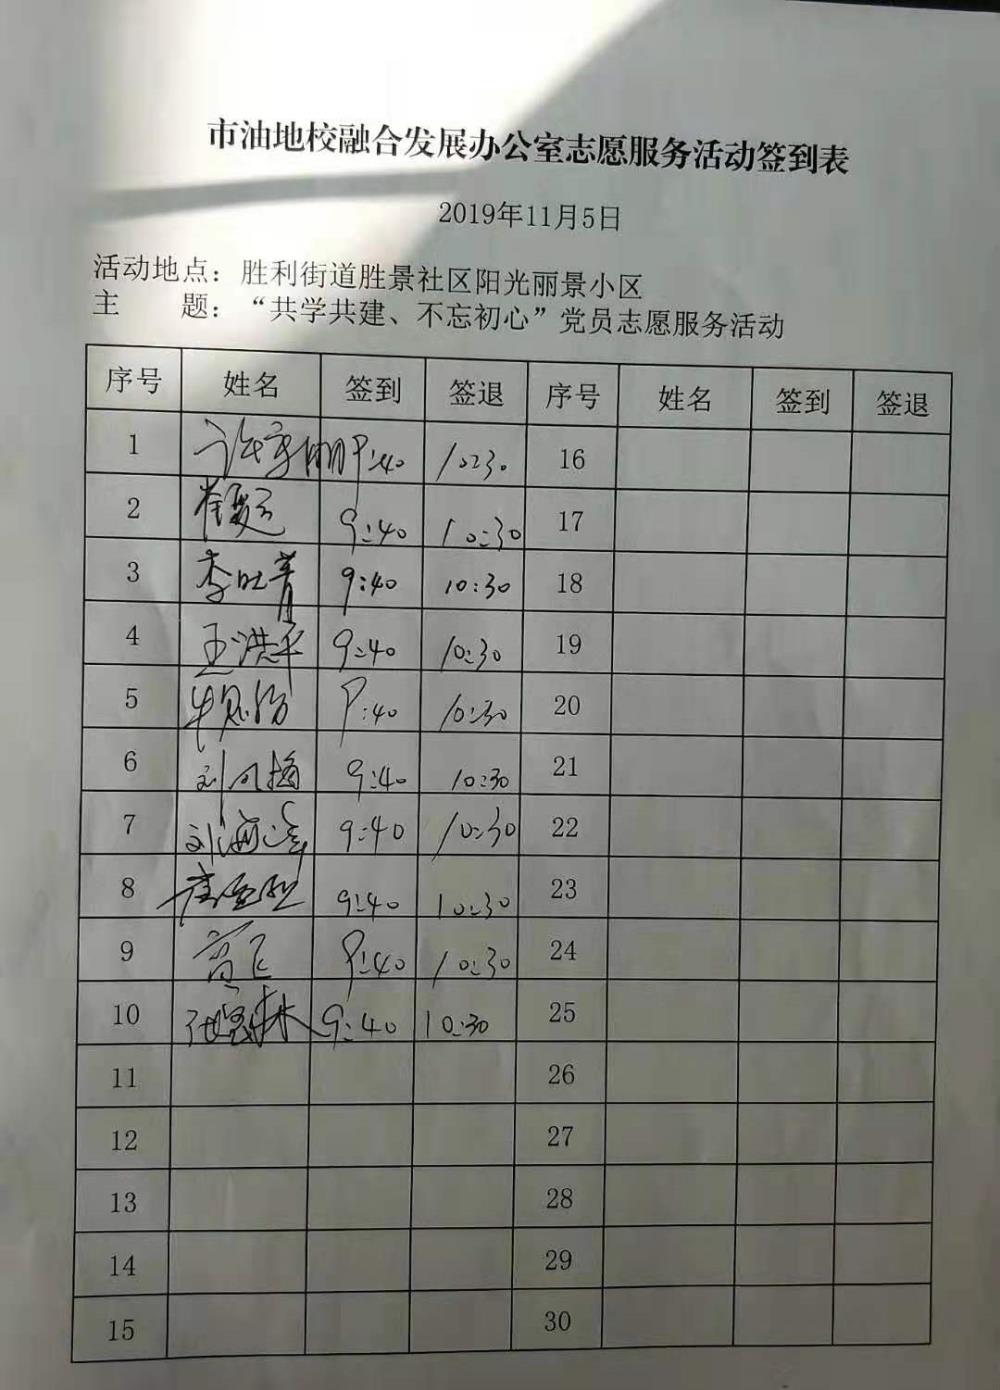 市油地校融合发展办公室志愿服务活动签到表
2019年11月5日
活动地点：胜利街道胜景社区阳光丽景小区
主　　题：“共学共建、不忘初心”党员志愿服务活动
序号 姓名 签到 签退 序号 姓名 签到 签退
1 9:40 10:30 16
2 9:40 10:30 17
3 9:40 10:30 18
4 王洪平 9:40 10:30 19
5 9:40 10:30 20
6 刘凤梅 9:40 10:30 21
7 刘海 9:40 10:30 22
8 9:40 10:30 23
9 高飞 9:40 10:30 24
10 9:40 10:30 25
11 26
12 27
13 28
14 29
15 30